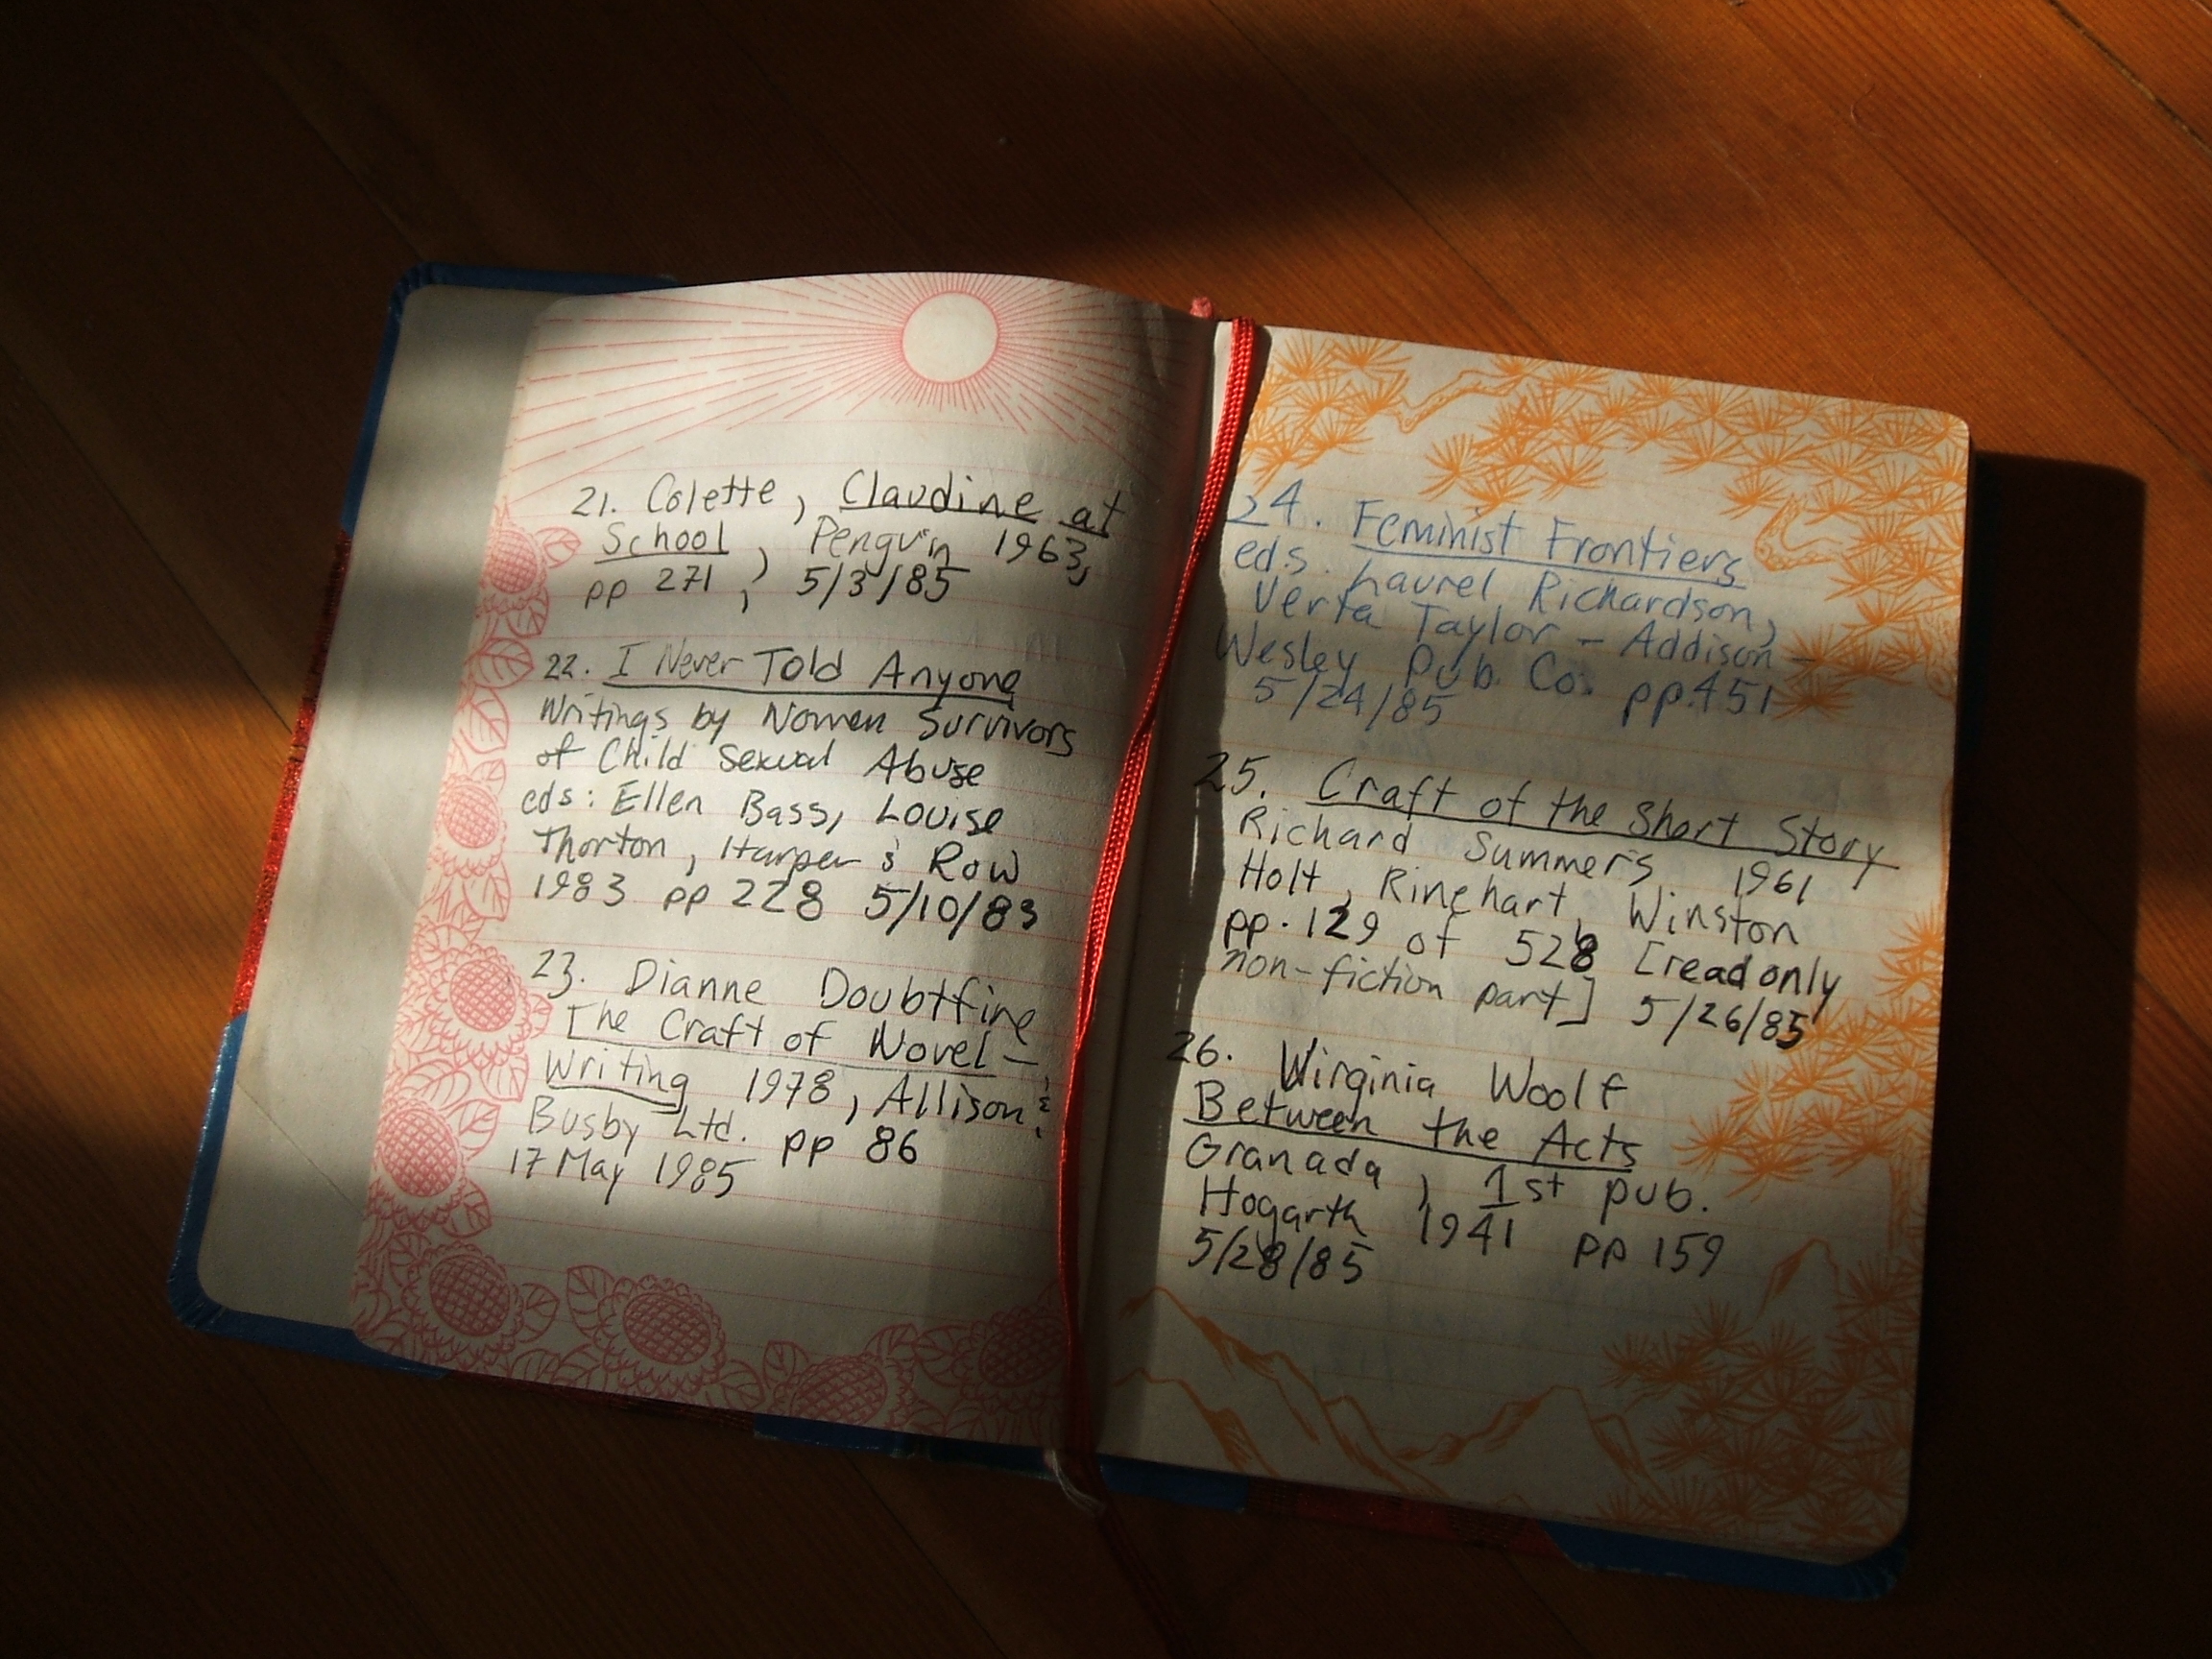 21. Colette, Claudine at
School, Penguin 1963,
pp 271, 5/3/85
22. I Never Told Anyone
Writings by Women Survivors
of Child Sexual Abuse
eds: Ellen Bass, Louise
Thorton, Harper & Row
1983 pp 228 5/10/85
23. Dianne Doubtfire
The Craft of Novel-
Writing 1978, Allison &
Busby Ltd. pp 86
17 May 1985
24. Feminist Frontiers
eds. Laurel Richardson,
Verta Taylor - Addison-
Wesley Pub. Co. pp. 451
5/24/85
25. Craft of the Short Story
Richard Summers 1961
Holt, Rinehart, Winston
pp. 129 of 528 [read only
non-fiction part] 5/26/85
26. Virginia Woolf
Between the Acts
Granada, 1st pub.
Hogarth 1941 pp 159
5/28/85